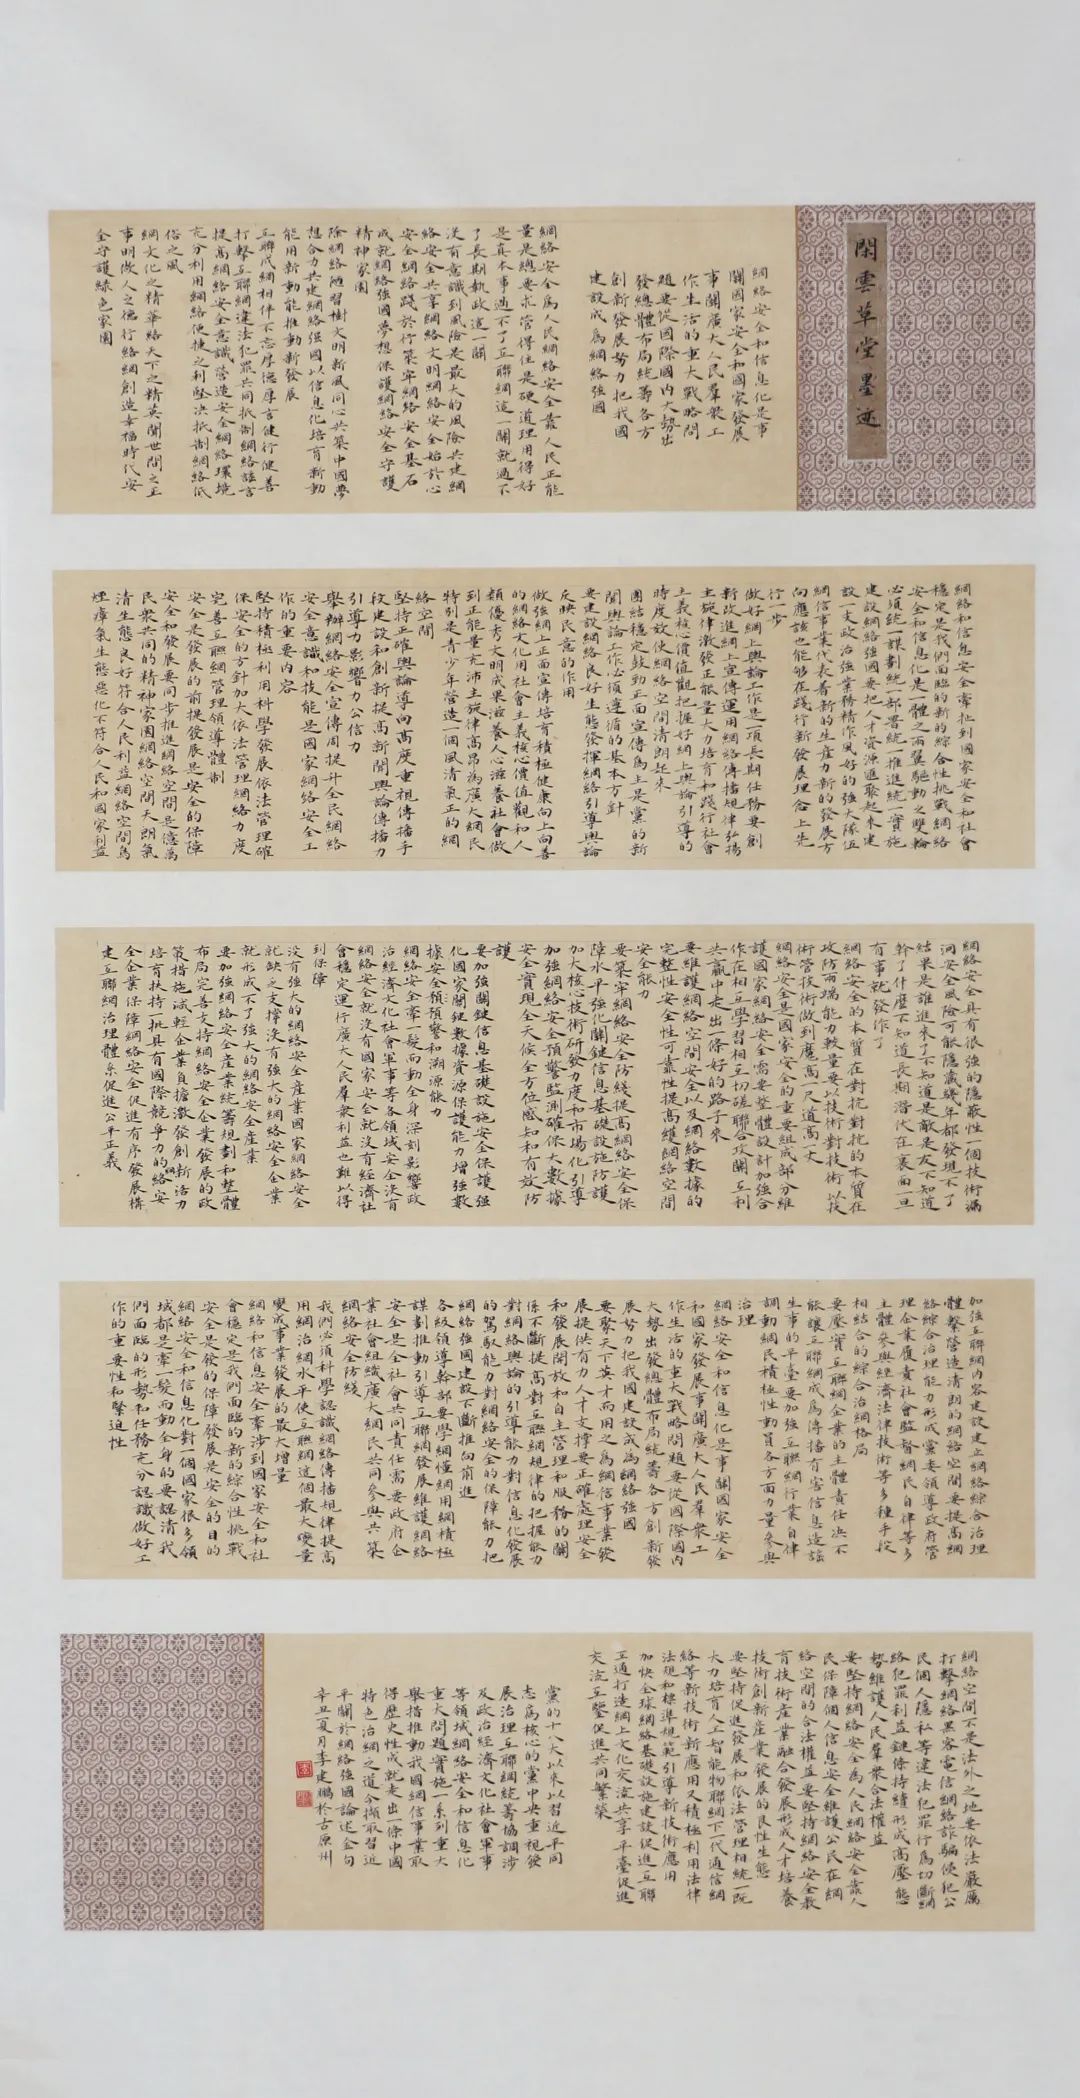 閑雲草堂墨迹
網絡安全和信息化是事
關國家安全和國家發展
事關廣大人民羣衆工
作生活的重大戰略問
題要從國際國内大勢出
發總體布局統籌各方
創新發展努力把我國
建設成爲網絡强國
網絡安全爲人民網絡安全靠人民正能
量是總要求管得住是硬道理用得好
是真本事過不了互聯網這一關就過不
了長期執政這一關
没有意識到風險是最大的風險共建網
絡安全共享網絡文明網絡安全始於心
安全網絡踐於行築牢網絡安全基石
成就網絡强國夢想保護網絡安全守護
精神家園
除網絡陋習樹文明新風同心共築中國夢
想合力共建網絡强國以信息化培育新動
能用新動能推動新發展
互聯成網相伴不忘厚德厚言健行健善
打擊互聯網違法犯罪共同抵制網絡謡言
提高網絡安全意識營造安全網絡環境
充分利用網絡便捷之利堅决抵制網絡低
俗之風
網文化之精華絡天下之精英聞世間之
事明做人之德行絡網創造幸福時代安
全守護緑色家園
網絡和信息安全牽扯到國家安全和社會
穩定是我們面臨的新的綜合性挑戰網絡
安全和信息化是一體之兩翼驅動之雙輪
必須統一謀劃統一部署統一推進統一實施
建設網絡强國要把人才資源匯聚起來建
設一支政治强業務精作風好的强大隊伍
網信事業代表着新的生産力新的發展方
向應該也能够在踐行新發展理念上先
行一步
做好網上輿論工作是一項長期任務要創
新改進網上宣傳運用網絡傳播規律弘揚
主旋律激發正能量大力培育和踐行社會
主義核心價值觀把握好網上輿論引導的
時度效使網絡空間清朗起來
團結穩定鼓勁正面宣傳爲主是黨的新
聞輿論工作必須遵循的基本方針
要建設網絡良好生態發揮網絡引導輿論
反映民意的作用
做强網上正面宣傳培育積極健康向上向善
的網絡文化用社會主義核心價值觀和人
類優秀文明成果滋養人心滋養社會做
到正能量充沛主旋律高昂爲廣大網民
特别是青少年營造一個風清氣正的網
絡空間
堅持正確輿論導向高度重視傳播手
段建設和創新提高新聞輿論傳播力
引導力影響力公信力
舉辦網絡安全宣傳周提升全民網絡
安全意識和技能是國家網絡安全工
作的重要内容
堅持積極利用科學發展依法管理確
保安全的方針加大依法管理網絡力度
完善互聯網管理領導體制
安全是發展的前提發展是安全的保障
安全和發展要同步推進網絡空間是億萬
民衆共同的精神家園網絡空間天朗氣
清生態良好符合人民利益網絡空間烏
煙瘴氣生態惡化不符合人民和國家利益
網絡安全具有很强的隱蔽性一個技術漏
洞安全風險可能隱藏幾年都發現不了
結果是誰進來了不知道是敵是友不知道
幹了什麽不知道長期潜伏在裏面一旦
有事就發作了
網絡安全的本質在對抗對抗的本質在
攻防兩端能力較量要以技術對技術以技
術管技術做到魔高一尺道高一丈
網絡安全是國家安全的重要組成部分維
護國家網絡安全需要整體設計加强合
作在相互學習相互切磋聯合攻關互利
共贏中走出一條好的路子來
要維護網絡空間安全以及網絡數據的
完整性安全性可靠性提高維護網絡空間
安全能力
要築牢網絡安全防綫提高網絡安全保
障水平强化關鍵信息基礎設施防護
加大核心技術研發力度和市場化引導
加强網絡安全預警監測確保大數據
安全實現全天候全方位感知和有效防
護
要加强關鍵信息基礎設施安全保護强
化國家關鍵數據資源保護能力增强數
據安全預預警和溯源能力
網絡安全牽一髮而動全身深刻影響政
治經濟文化社會軍事等各領域安全没有
網絡安全就没有國家安全就没有經濟社
會穩定運行廣大人民羣衆利益也難以得
到保障
没有强大的網絡安全産業國家網絡安全
就缺之支撑没有强大的網絡安全企業
就形成不了强大的網絡安全産業
要加强網絡安全産業統籌規劃和整體
布局完善支持網絡安全企業發展的政
策措施减輕企業負擔激發創新活力
培育扶持一批具有國際競争力的網絡安
全企業保障網絡安全促進有序發展構
建互聯網治理體系促進公平正義
加强互聯網内容建設建立網絡綜合治理
體繫營造清朗的網絡空間要提高網
絡綜合治理能力形成黨委領導政府管
理企業履責社會監督網民自律等多
主體參與經濟法律技術等多種手段
相結合的綜合治網格局
要壓實互聯網企業的主體責任决不
能讓互聯網成爲傳播有害信息造謡
生事的平臺要加强互聯網行業自律
調動網民積極性動員各方面力量參與
治理
網絡安全和信息化是事關國家安全
和國家發展事關廣大人民羣衆工
作生活的重大戰略問題要從國際國内
大勢出發總體布局統籌各方創新發
展努力把我國建設成爲網絡强國
要聚天下英才而用之爲網信事業發
展提供有力人才支撑要正確處理安全
和發展開放和自主管理和服務的關
係不斷提高對互聯網規律的把握能力
對網絡輿論的引導能力對信息化發展
的駕馭能力對網絡安全的保障能力把
網絡强國建設不斷推向前進
各級領導幹部要學網懂網用網積極
謀劃推動引導互聯網發展維護網絡
安全是全社會共同責任需要政府企
業社會組織廣大網民共同參與共築
網絡安全防綫
我們必須科學認識網絡傳播規律提高
用網治網水平使互聯網這個最大變量
變成事業發展的最大增量
網絡和信息安全牽涉到國家安全和社
會穩定是我們面臨的新的綜合性挑戰
安全是發的保障發展是安全的目的
網絡安全和信息化對一個國家很多領
域都是牽一髮而動全身的要認清我
們面臨的形勢和任務充分認識做好工
作的重要性和緊迫性
網絡空間不是法外之地要依法嚴厲
打擊網絡黑客電信網絡詐騙侵犯公
民個人隱私等違法犯罪行爲切斷網
絡犯罪利益鏈條持續形成高壓態
勢維護人民羣衆合法權益
要堅持網絡安全爲人民網絡安全靠人
民保障個人信息安全維護公民在網
絡空間的合法權益要堅持網絡安全教
育技術産業融合發展形成人才培養
技術創新産業發展的良性生態
要堅持促進發展和依法管理相統一既
大力培育人工智能物聯網下一代通信網
絡等新技術新應用又積極利用法律
法規和標準規範引導新技術應用
加快全球網絡基礎設施建設促進互聯
互通打造網上文化交流共享平臺促進
交流互鑒促進共同繁榮
黨的十八大以來以習近平同
志爲核心的黨中央重視發
展治理互聯網統籌協調涉
及政治經濟文化社會軍事
等領域網絡安全和信息化
重大問題實施一系列重大
舉措推動我國網信事業取
得歷史性成就走出一條中國
特色治網之道今擷取習近
平關於網絡强國論述金句
辛丑夏月李建鵬於古原州